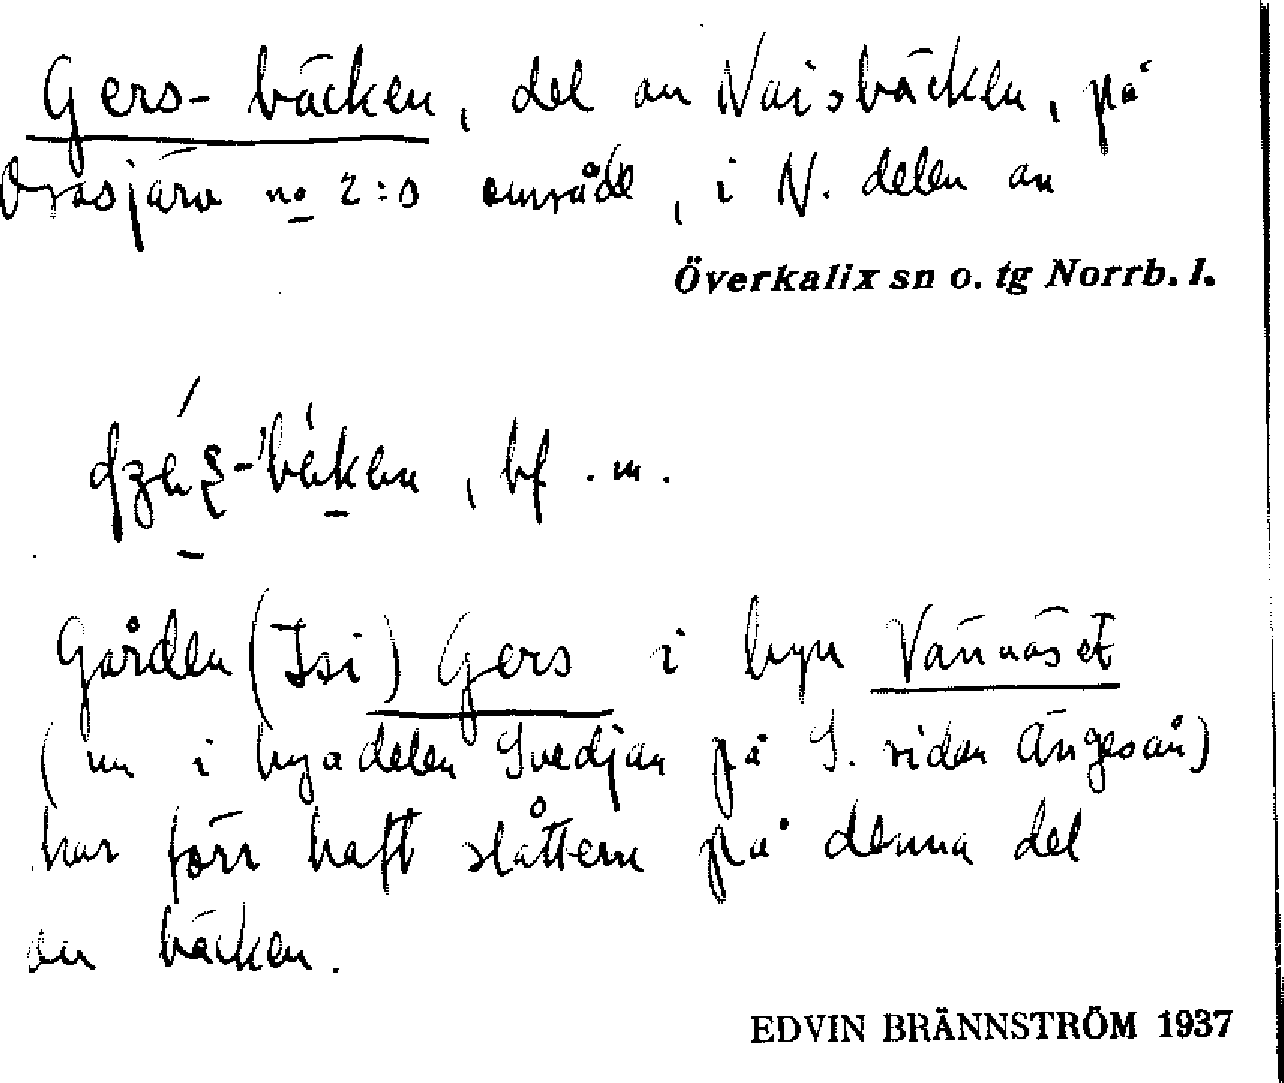 Gers-bäcken, del av Naisbäcken, på
Orrasjärv no 2:s område, i N. delen av
Överkalix sn o. tg Norrb. l.
-'bäken, bf. m.
Gården (Isi) Gers i byn Vännäset
(nu i byadelen Svedjan på S. sidan Ängesån)
har förr haft slåttern på denna del
av bäcken.
EDVIN BRÄNNSTRÖM 1937